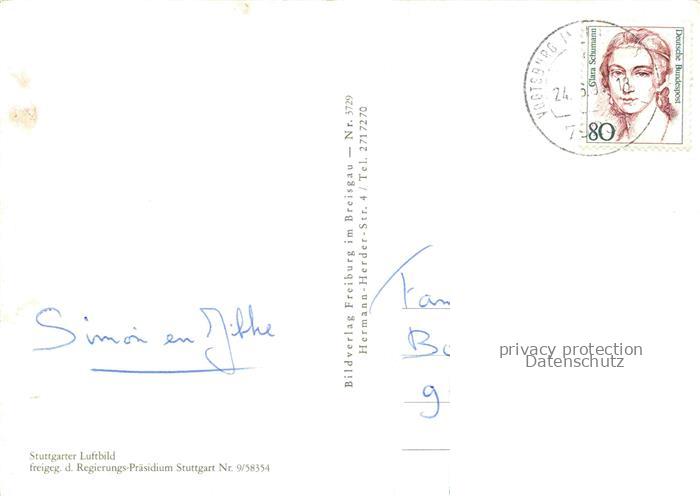 Simon en
Stuttgarter Luftbild
freigeg. d. Regierungs-Präsidium Stuttgart Nr. 9/58354
Bildverlag Freiburg im Breisgau — Nr. 3729
Hermann-Herder-Str. 4 / Tel. 2717270
Clara Schumann
Deutsche Bundespost
80
Fam
Bo
g
privacy protection
Datenschutz